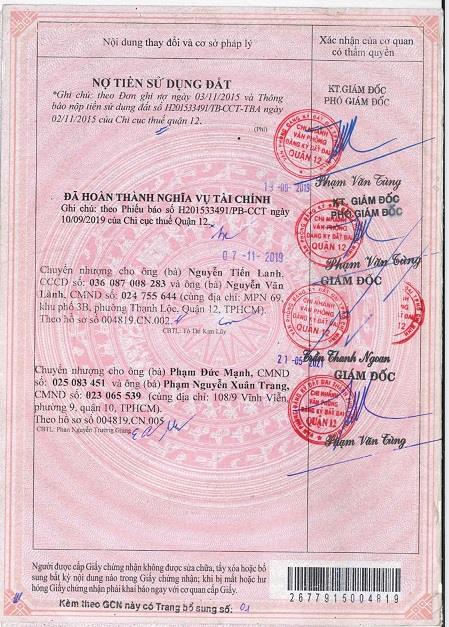 Nội dung thay đổi và cơ sở pháp lý
Xác nhận của cơ quan
có thẩm quyền
NỢ TIỀN SỬ DỤNG ĐẤT
*Ghi chú: theo Đơn ghi nợ ngày 03/11/2015 và Thông
báo nộp tiền sử dụng đất số H201533491/TB-CCT-TBA ngày
02/11/2015 của Chi cục thuế quận 12.
KT.GIÁM ĐỐC
PHÓ GIÁM ĐỐC
CHI NHÁNH
VĂN PHÒNG
ĐĂNG KÝ ĐẤT ĐAI
QUẬN 12
Phạm Văn Từng
13-09-2019
ĐÃ HOÀN THÀNH NGHĨA VỤ TÀI CHÍNH
Ghi chú: theo Phiếu báo số H201533491/PB-CCT ngày
10/09/2019 của Chi cục thuế Quận 12.
KT. GIÁM ĐỐC
PHÓ GIÁM ĐỐC
CHI NHÁNH
VĂN PHÒNG
ĐĂNG KÝ ĐẤT ĐAI
QUẬN 12
Phạm Văn Từng
07-11-2019
Chuyển nhượng cho ông (bà) Nguyễn Tiến Lanh,
CCCD số 036 087 008 283 và ông (bà) Nguyễn Văn
Lành, CMND số 024 755 644 (cùng địa chỉ: MPN 69,
khu phố 3B, phường Thạnh Lộc, Quận 12, TPHCM).
Theo hồ sơ số 004819.CN.002
CBTL: Tô Thị Kim Lũy
GIÁM ĐỐC
CHI NHÁNH
VĂN PHÒNG
ĐĂNG KÝ ĐẤT ĐAI
QUẬN 12
Trần Thanh Ngoan
21-05-2021
Chuyển nhượng cho ông (bà) Phạm Đức Mạnh, CMND
số: 025 083 451 và ông (bà) Phạm Nguyễn Xuân Trang,
CMND số: 023 065 539 (cùng địa chỉ: 108/9 Vĩnh Viễn,
phường 9, quận 10, TPHCM)
Theo hồ sơ số 004819.CN.005
CBTL: Phan Nguyễn Trường Giang
GIÁM ĐỐC
CHI NHÁNH
VĂN PHÒNG
ĐĂNG KÝ ĐẤT ĐAI
QUẬN 12
Phạm Văn Từng
Người được cấp Giấy chứng nhận không được sửa chữa, tẩy xóa hoặc bổ
sung bất kỳ nội dung nào trong Giấy chứng nhận; khi bị mất hoặc hư
hỏng Giấy chứng nhận phải khai báo ngay với cơ quan cấp Giấy.
2677915004819
Kèm theo GCN này có Trang bổ sung số: 01